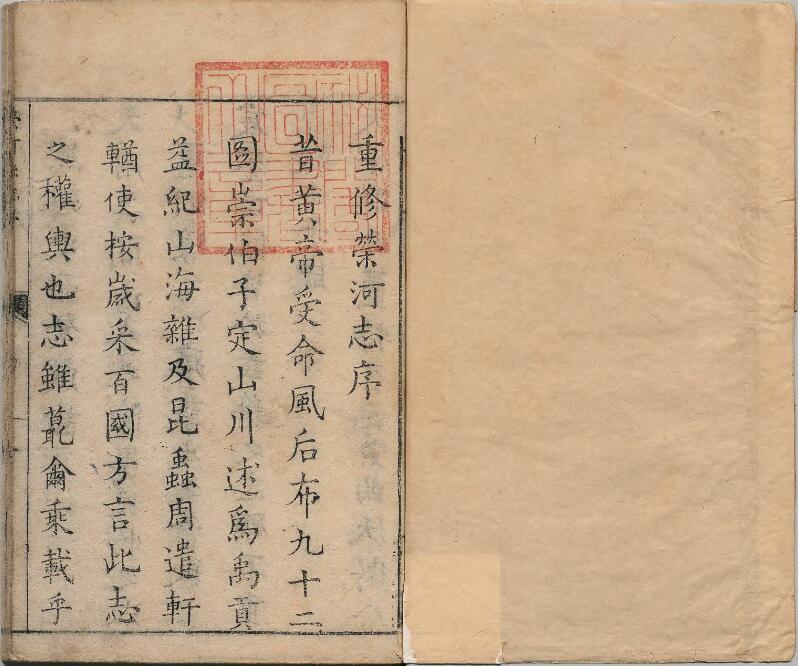 重修榮河志序
昔黃帝受命風后布九十二
囼崇伯子定山川述爲禹貢
益紀山海雜及昆蟲周遣軒
輶使按歲采百國方言此志
之權輿也志雖蕞爾乘載乎